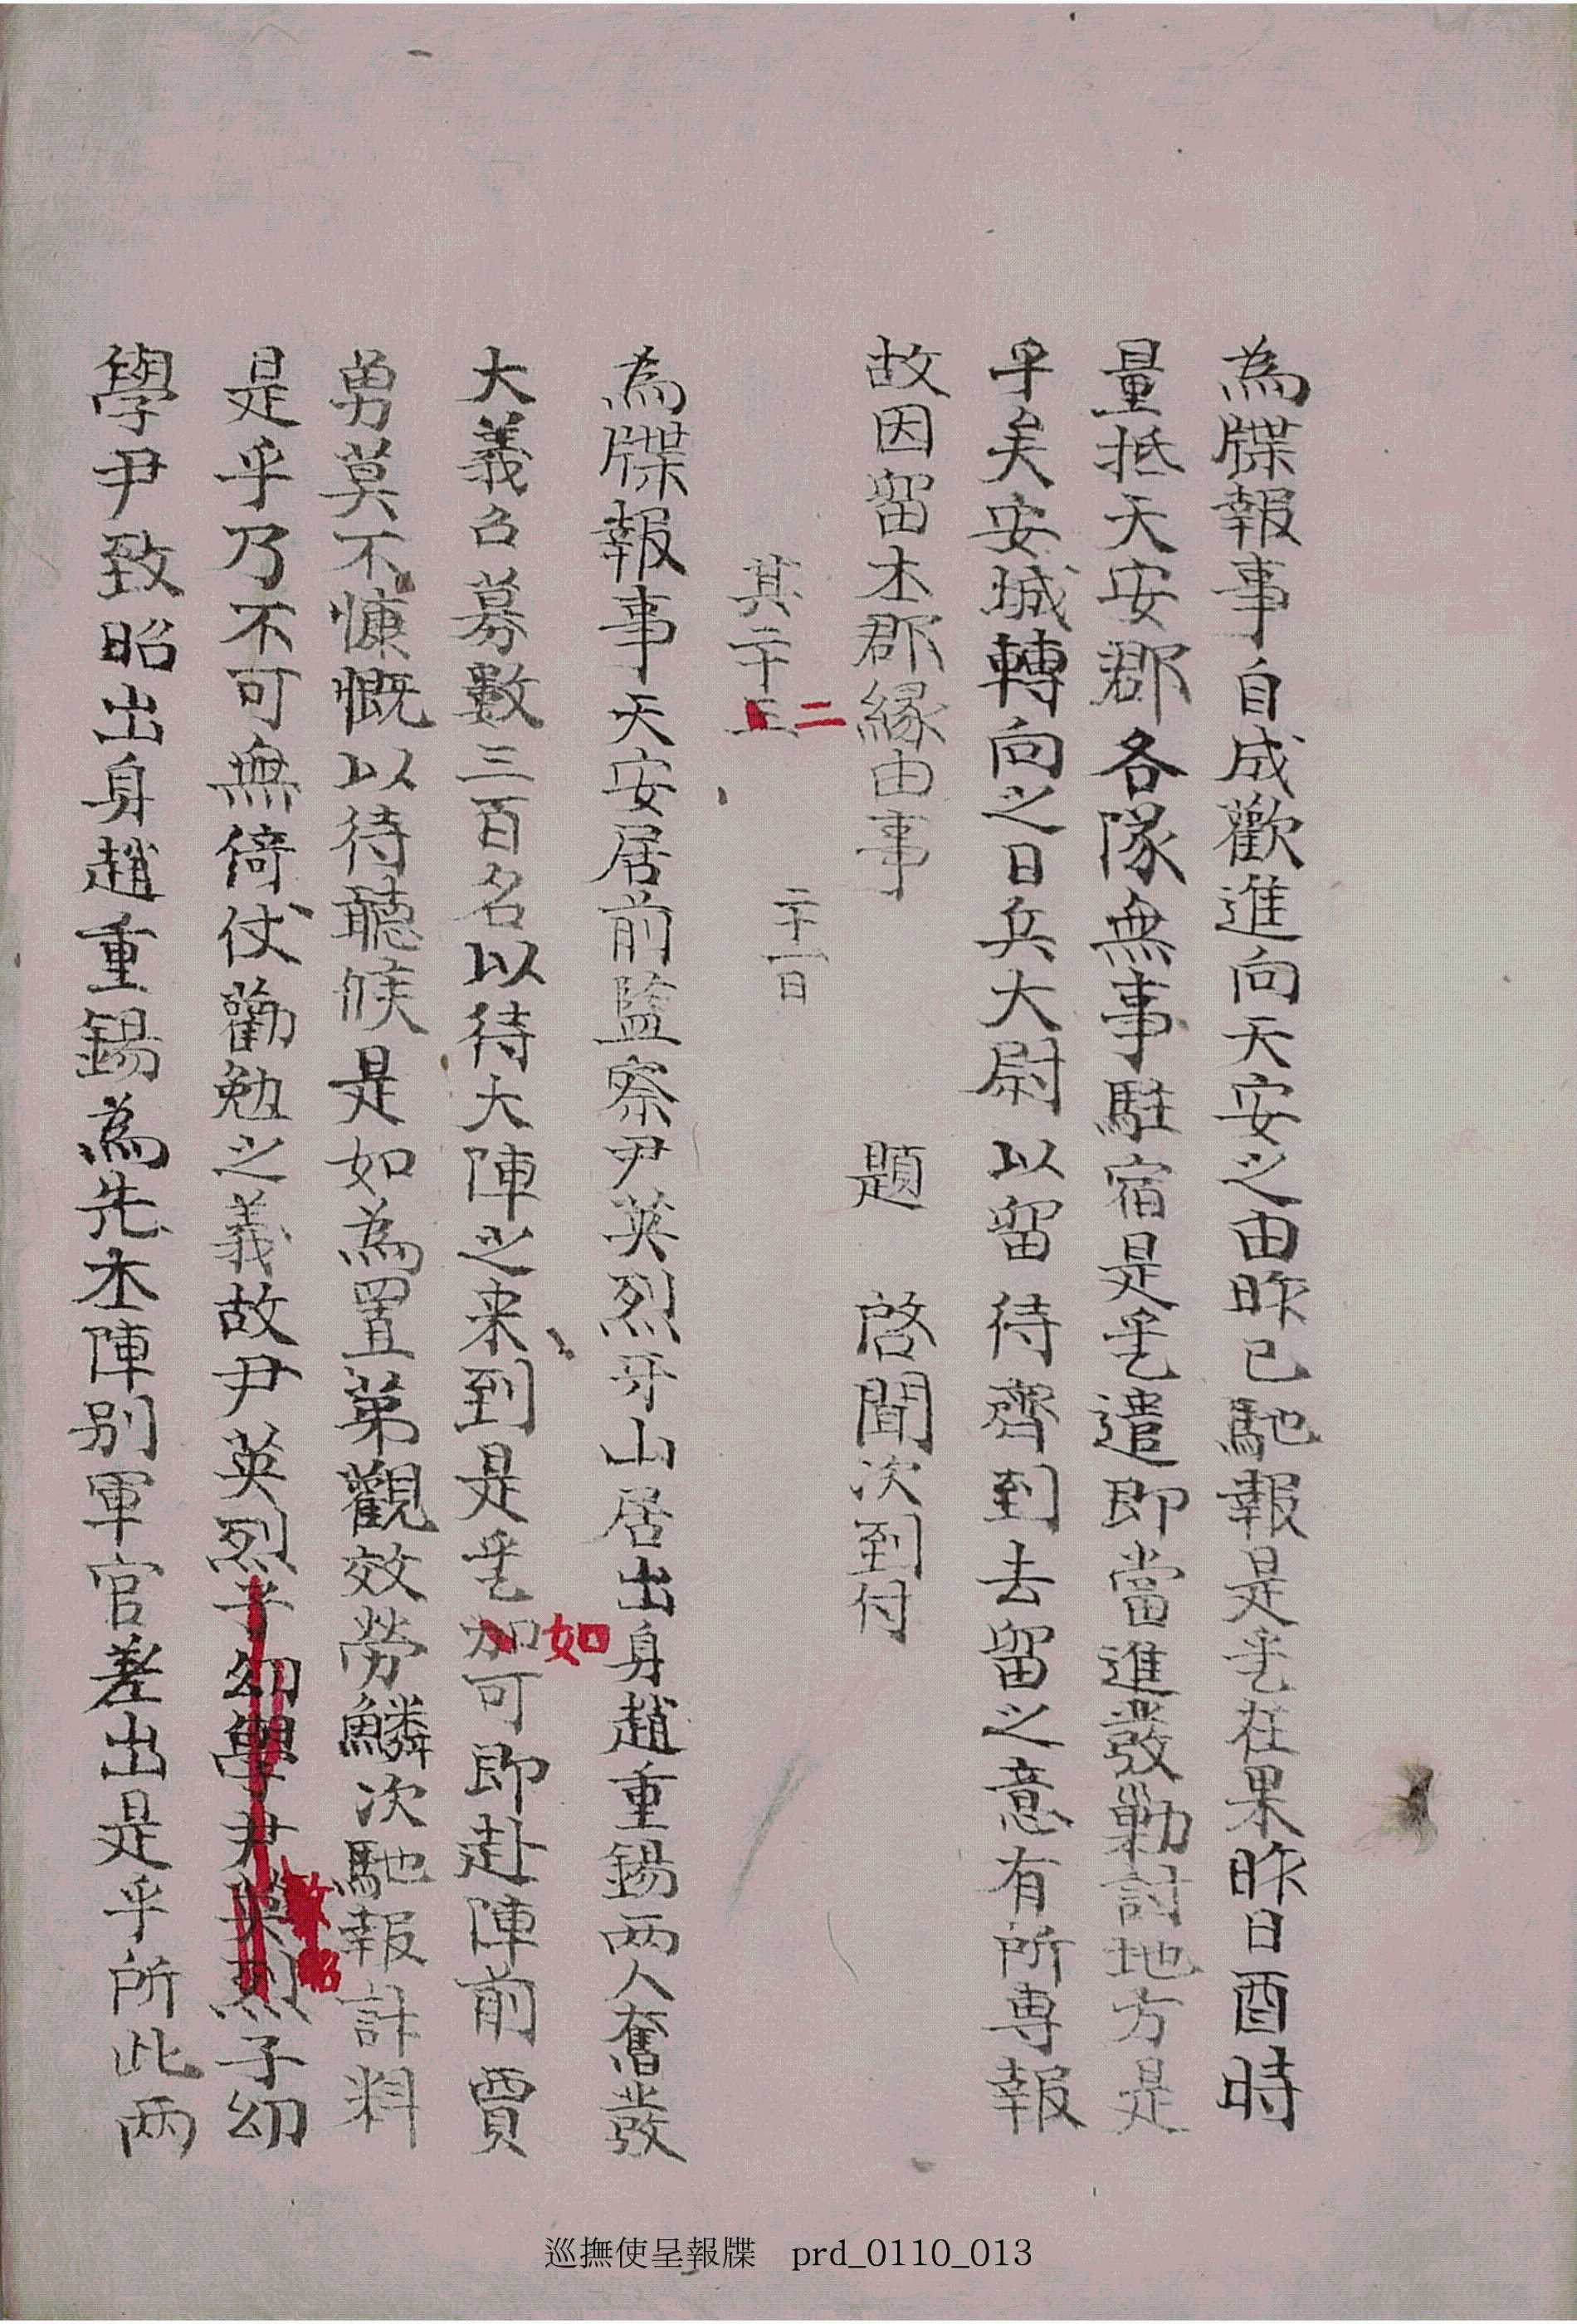 為牒報事自成歡進向天安之由昨已馳報是乎乙在果昨日酉時
量抵天安郡各隊無事駐宿是乎乙遣即當進發勦討地方是
乎矣安城轉向之日兵大尉以留待齊到去留之意有所専報
故因留本郡緣由事 題 啓聞次到付
二十一日
其二十三
二
為牒報事天安居前監察尹英烈牙山居出身趙重錫兩人奮發
大義召募數三百名以待大陣之来到是乎乙加可即赴陣前賈
如
勇莫不慷慨以待聽候是如為置第觀效勞鱗次馳報計料
是乎乃不可無倚仗勸勉之義故尹英烈子幼學尹英烈子幼
致昭
學尹致昭出身趙重錫為先本陣別軍官差出是乎所此兩
巡撫使呈報牒 prd_0110_013